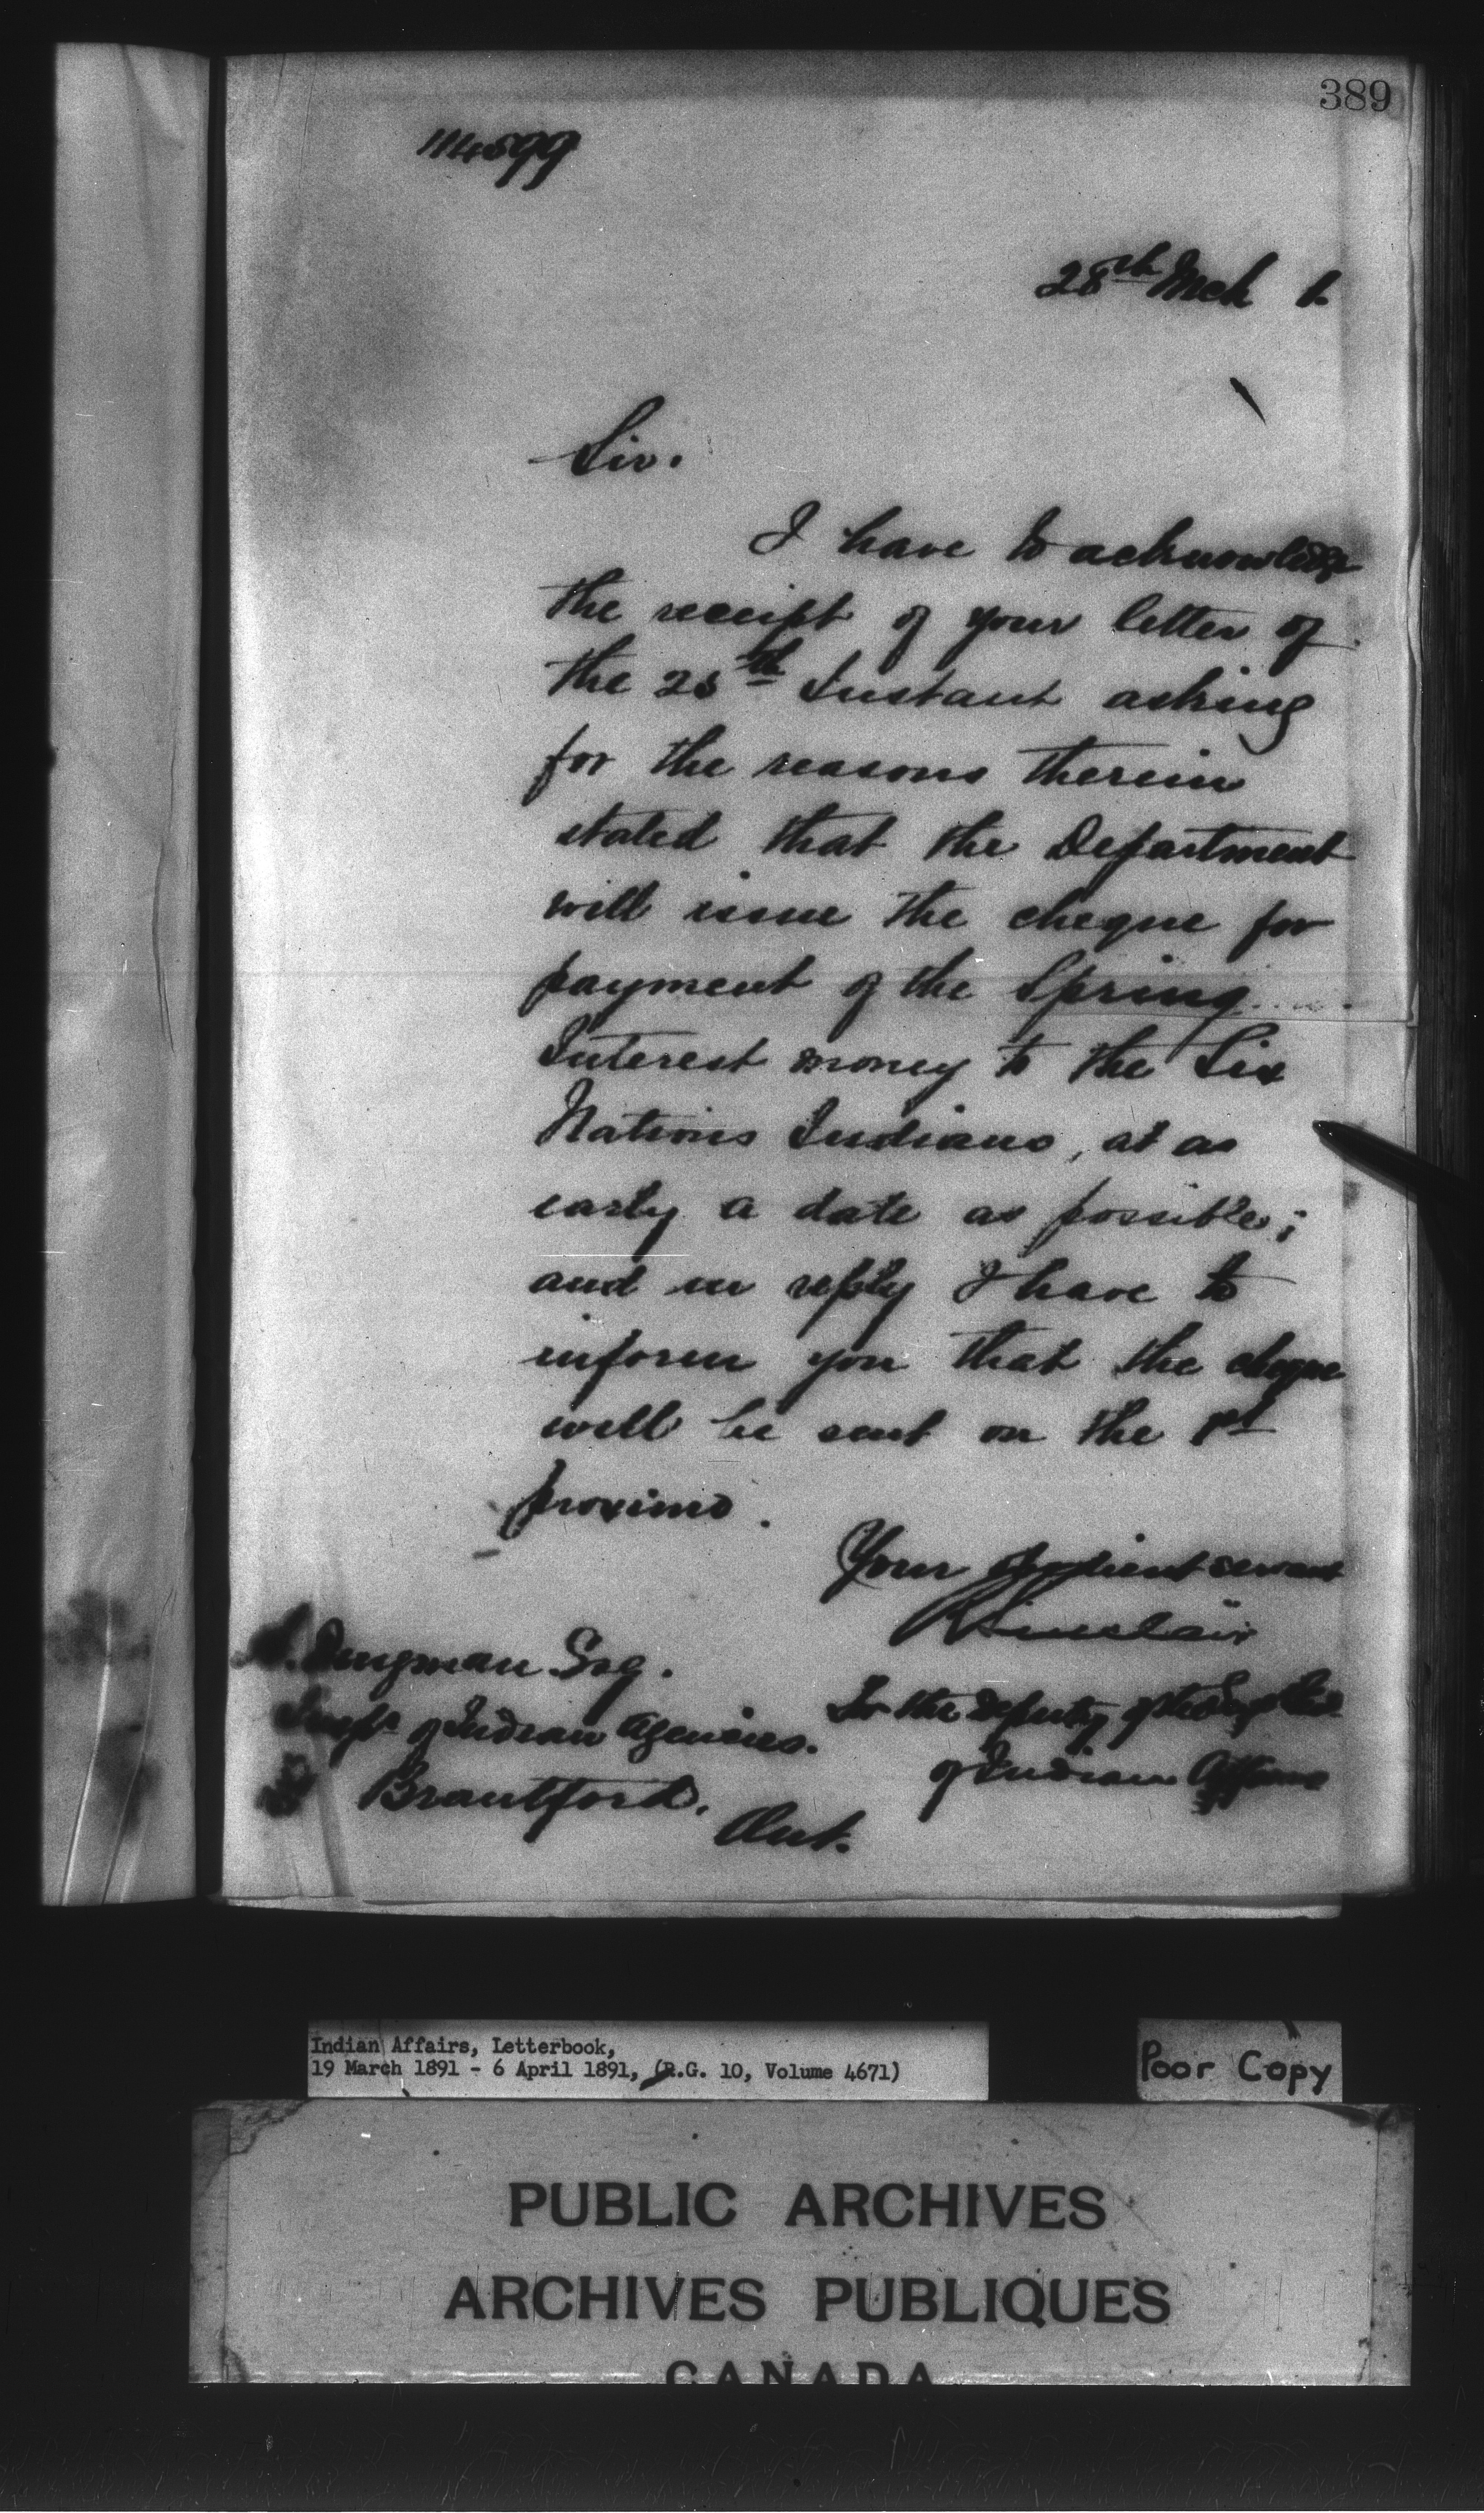 389
114599
28th Mch 1
Sir.
I have to acknowledge
the receipt of your letter of
the 25th Instant asking
for the reasons therein
stated that the Department
will issue the cheque for
payment of the Spring
Interest money to the Six
Nations Indians, at as
early a date as possible;
and in reply I have to
inform you that the cheque
will be sent on the 1st
proximo.
Your obedient servant
R Sinclair
For the Deputy of the Supt Genl
of Indian Affairs
A. Dingman Esq.
Inspr of Indian Agencies.
Brantford.
Ont.
Indian Affairs, Letterbook,
19 March 1891 - 6 April 1891, (R.G. 10, Volume 4671)
Poor Copy
PUBLIC ARCHIVES
ARCHIVES PUBLIQUES
CANADA